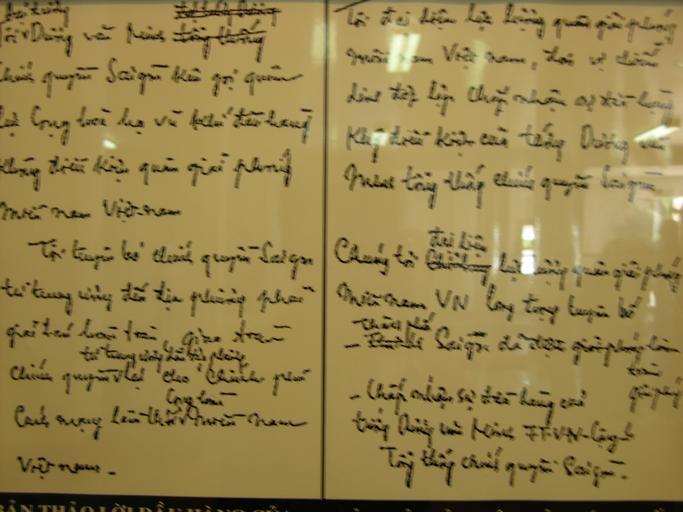 Đại tướng
Tôi Dương văn Minh tổng thống
chính quyền Saigon kêu gọi quân
lực Cộng hoà hạ vũ khí đầu hàng
không điều kiện quân giải phóng
miền nam Việt-nam
Tôi tuyên bố chính quyền Saigon
từ trung ương đến địa phương phải
giải tán hoàn toàn giao toàn
từ trung ương đến địa phương
chính quyền lại cho Chính phủ
Cộng hoà
Cách mạng lâm thời miền nam
Việt nam -
Tôi đại diện lực lượng quân giải phóng
miền nam Việt nam,
chấp nhận sự đầu hàng
không điều kiện của tướng Dương văn
Minh tổng thống chính quyền Saigon
đại diện
Chúng tôi lực lượng quân giải phóng
miền nam VN long trọng tuyên bố
thành phố
- Saigon đã được giải phóng hoàn
toàn
- Chấp nhận sự đầu hàng của
giải phóng
tướng Dương văn Minh
Tổng thống chính quyền Saigon -
BẢN THẢO LỜI ĐẦU HÀNG